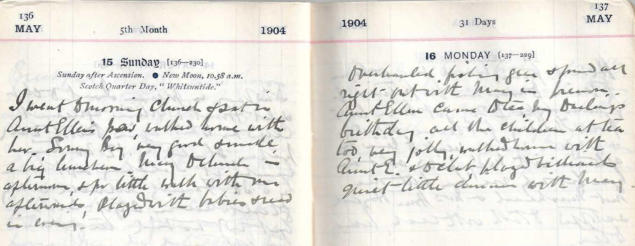 136
MAY
5th Month
1904
15 Sunday [136—230]
Sunday after Ascension. ● New Moon, 10.58 a.m.
Scotch Quarter Day, "Whitsuntide."
I went to morning Church & sat in
Aunt Ellen's pew, walked home with
her. Sunny day very good smoke,
a big luncheon. May
afternoon, & for little walk with me
afterwards. Played with babies
in eveng.
1904
31 Days
137
MAY
16 MONDAY [137—229]
Overhauled fishing gear spread all
right out with May in
Aunt Ellen came to tea by
birthday, all the children at tea
too, very jolly, walked home with
Aunt E. & played billiards
quiet little dinner with May